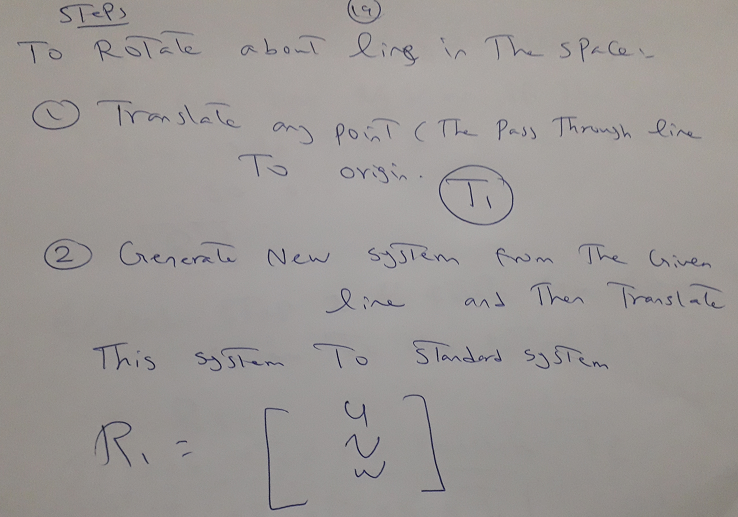 STEPS
19
To Rotate about line in The space:-
1 Translate any point (The Pass Through line
To origin. T1
2 Generate New system from The Given
line and Then Translate
This system To Standard system
R1 = [ u
v
w ]